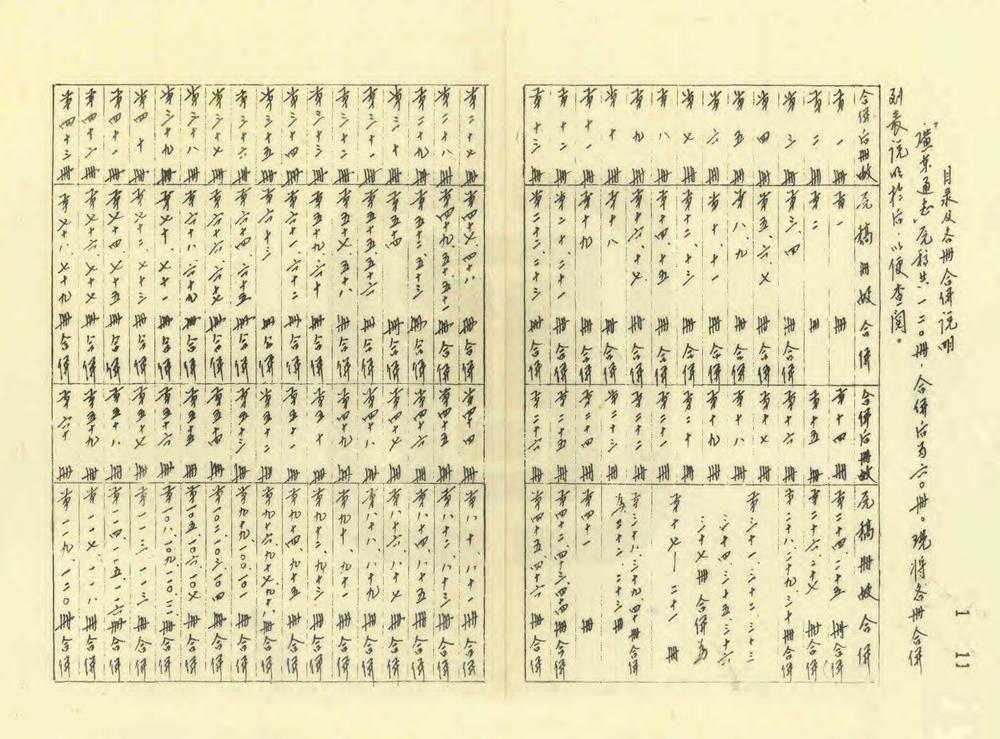 目录及各册合併说明
“广东通志”原稿共一二〇册，合併后为六〇册。现将各册合併
列表说明於后，以便查阅。
合併后册数 原稿册数合併
第一册 第一册
第二册 第二册
第三册 第三、四册合併
第四册 第五、六、七册合併
第五册 第八、九册合併
第六册 第十、十一册合併
第七册 第十二、十三册合併
第八册 第十四、十五册合併
第九册 第十六、十七册合併
第十册 第十八册
第十一册 第十九册
第十二册 第二十、二十一册合併
第十三册 第二十二、二十三册合併
合併后册数 原稿册数合併
第十四册 第二十四、二十五册合併
第十五册 第二十六、二十七册合併
第十六册 第二十八、二十九、三十册合併
第十七册 第三十一、三十二、三十三
第十八册 三十四、三十五、三十六
第十九册 三十七册合併为
第二十册 第十七—二十一册
第二十一册
第二十二册 第三十八、三十九、四十册合併
第二十三册 为二十二、二十三册
第二十四册 第四十一册
第二十五册 第四十二、四十三、四十四册合併
第二十六册 第四十五、四十六册合併
第二十七册 第四十七、四十八册合併
第二十八册 第四十九、五十、五十一册合併
第二十九册 第五十二、五十三册合併
第三十册 第五十四册
第三十一册 第五十五、五十六册合併
第三十二册 第五十七、五十八册合併
第三十三册 第五十九、六十册合併
第三十四册 第六十一、六十二册合併
第三十五册 第六十三册
第三十六册 第六十四、六十五册合併
第三十七册 第六十六、六十七册合併
第三十八册 第六十八、六十九册合併
第三十九册 第七十、七十一册合併
第四十册 第七十二、七十三册合併
第四十一册 第七十四、七十五册合併
第四十二册 第七十六、七十七册合併
第四十三册 第七十八、七十九册合併
第四十四册 第八十、八十一册合併
第四十五册 第八十二、八十三册合併
第四十六册 第八十四、八十五册合併
第四十七册 第八十六、八十七册合併
第四十八册 第八十八、八十九册合併
第四十九册 第九十、九十一册合併
第五十册 第九十二、九十三册合併
第五十一册 第九十四、九十五册合併
第五十二册 第九十六、九十七、九十八册合併
第五十三册 第九十九、一〇〇、一〇一册合併
第五十四册 第一〇二、一〇三、一〇四册合併
第五十五册 第一〇五、一〇六、一〇七册合併
第五十六册 第一〇八、一〇九、一一〇、一一一册合併
第五十七册 第一一二、一一三册合併
第五十八册 第一一四、一一五、一一六册合併
第五十九册 第一一七、一一八册合併
第六十册 第一一九、一二〇册合併